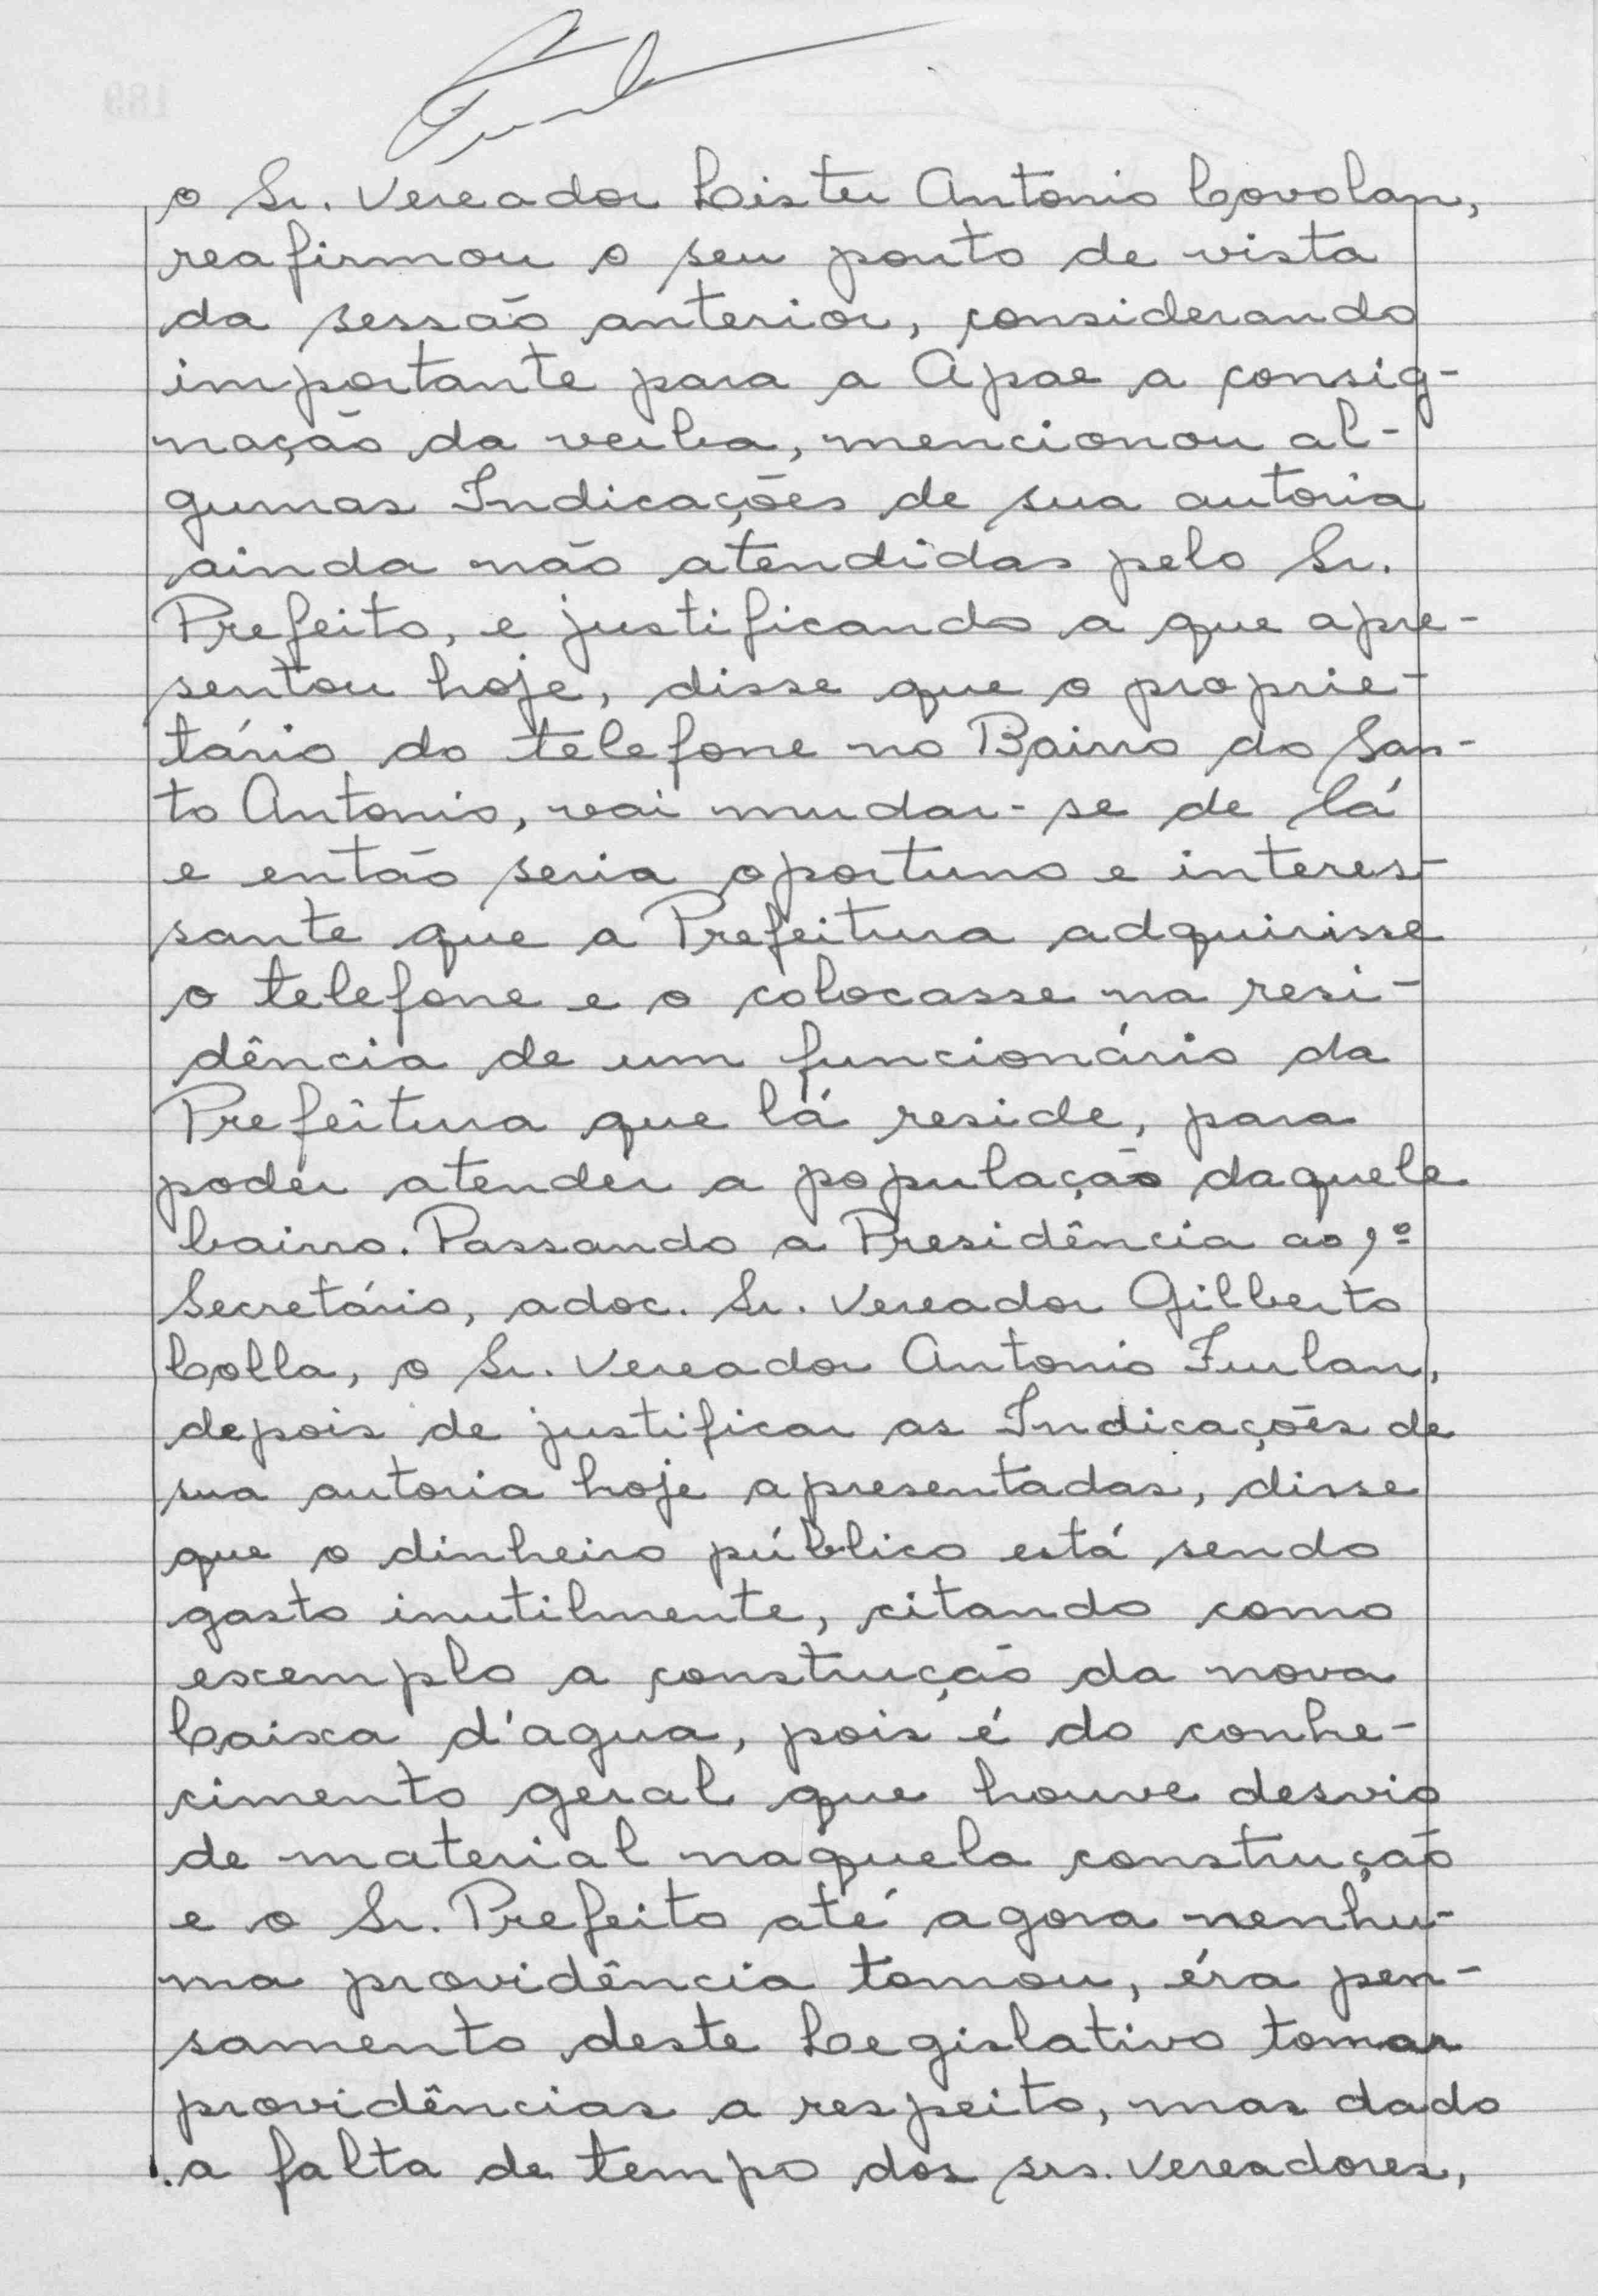 o Sr. Vereador Lister Antonio Covolan,
reafirmou o seu ponto de vista
da sessão anterior, considerando
importante para a Apae a consig-
nação da verba, mencionou al-
gumas Indicações de sua autoria
ainda não atendidas pelo Sr.
Prefeito, e justificando a que apre-
sentou hoje, disse que o proprie-
tário do telefone no Bairro do San-
to Antonio, vai mudar-se de lá
e então seria oportuno e interes-
sante que a Prefeitura adquirisse
o telefone e o colocasse na resi-
dência de um funcionário da
Prefeitura que lá reside, para
poder atender a população daquele
bairro. Passando a Presidência ao 1º
Secretário, adoc. Sr. Vereador Gilberto
Colla, o Sr. Vereador Antonio Furlan,
depois de justificar as Indicações de
sua autoria hoje apresentadas, disse
que o dinheiro público está sendo
gasto inutilmente, citando como
excemplo a construção da nova
Caixa d'agua, pois é do conhe-
cimento geral que houve desvio
de material naquela construção
e o Sr. Prefeito até agora nenhu-
ma providência tomou, éra pen-
samento deste Legislativo tomar
providências a respeito, mas dado
a falta de tempo dos srs. Vereadores,